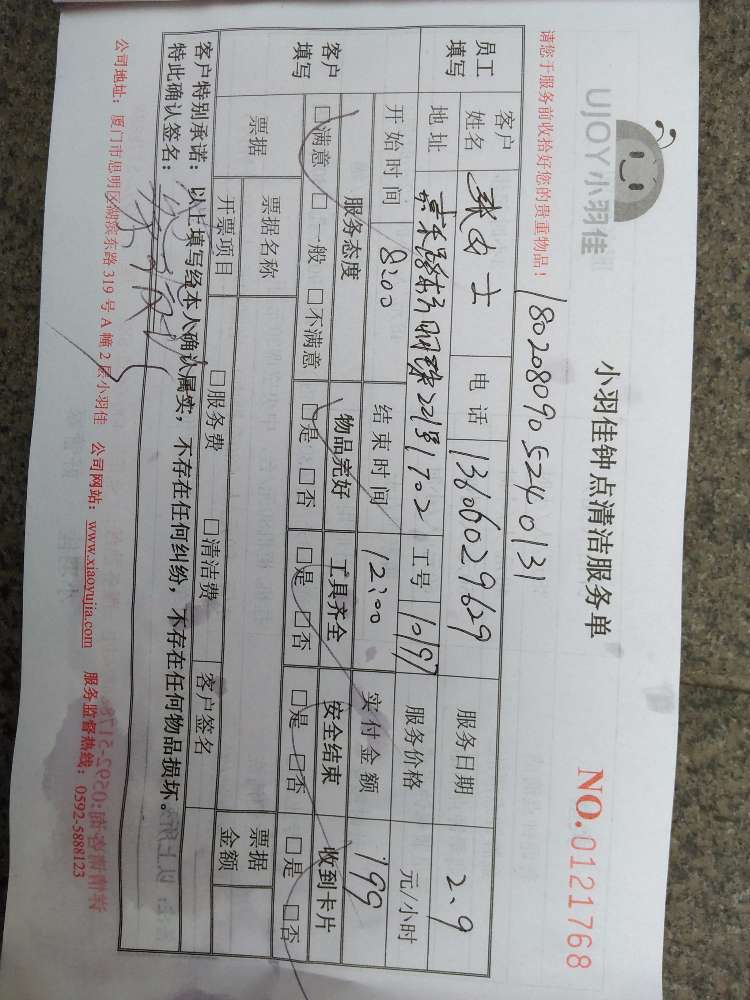 UJOY小羽佳
小羽佳钟点清洁服务单
NO.0121768
请您于服务前收拾好您的贵重物品！
1802080905240131
员工填写 客户姓名 女士 电话 13606029629 服务日期 2、9
地址 嘉禾路 明珠22号1702 工号 10197 服务价格 元/小时
开始时间 8:00 结束时间 12:00 实付金额 199
客户填写 服务态度 物品完好 工具齐全 安全结束 收到卡片
□满意 □一般 □不满意 □是 □否 □是 □否 □是 □否 □是 □否
票据 票据名称 客户签名 票据金额
开票项目 □服务费 □清洁费
客户特别承诺：以上填写经本人确认属实，不存在任何纠纷，不存在任何物品损坏。
特此确认签名：
公司地址：厦门市思明区湖滨东路319号A幢2层小羽佳 公司网站：www.xiaoyujia.com 服务监督热线：0592-5888123